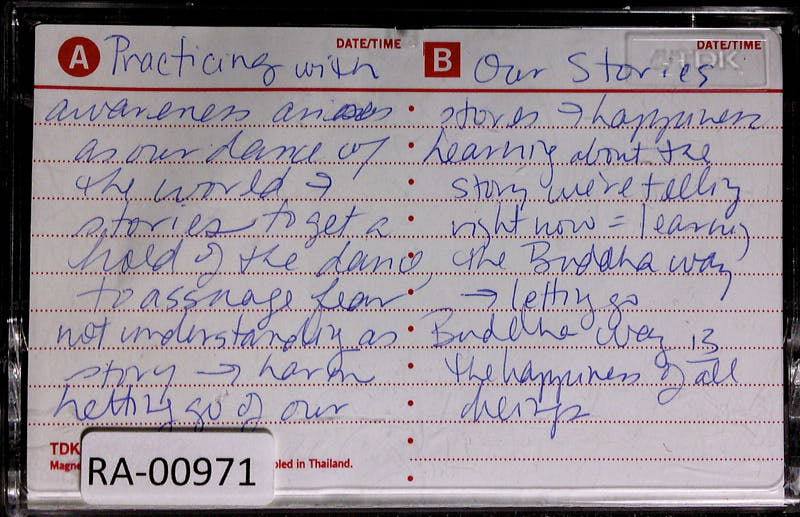 A Practicing with
DATE/TIME
awareness arises
as our dance w/
the world →
stories to get a
hold of the dance,
to assuage fear
not understanding as
story → harm
letting go of our
TDK
Magne
bled in Thailand.
RA-00971
B Our Stories
DATE/TIME
TDK
stories → happiness
Learning about the
story we're telling
right now = learning
the Buddha way
→ letting go
Buddha way is
the happiness of all
beings